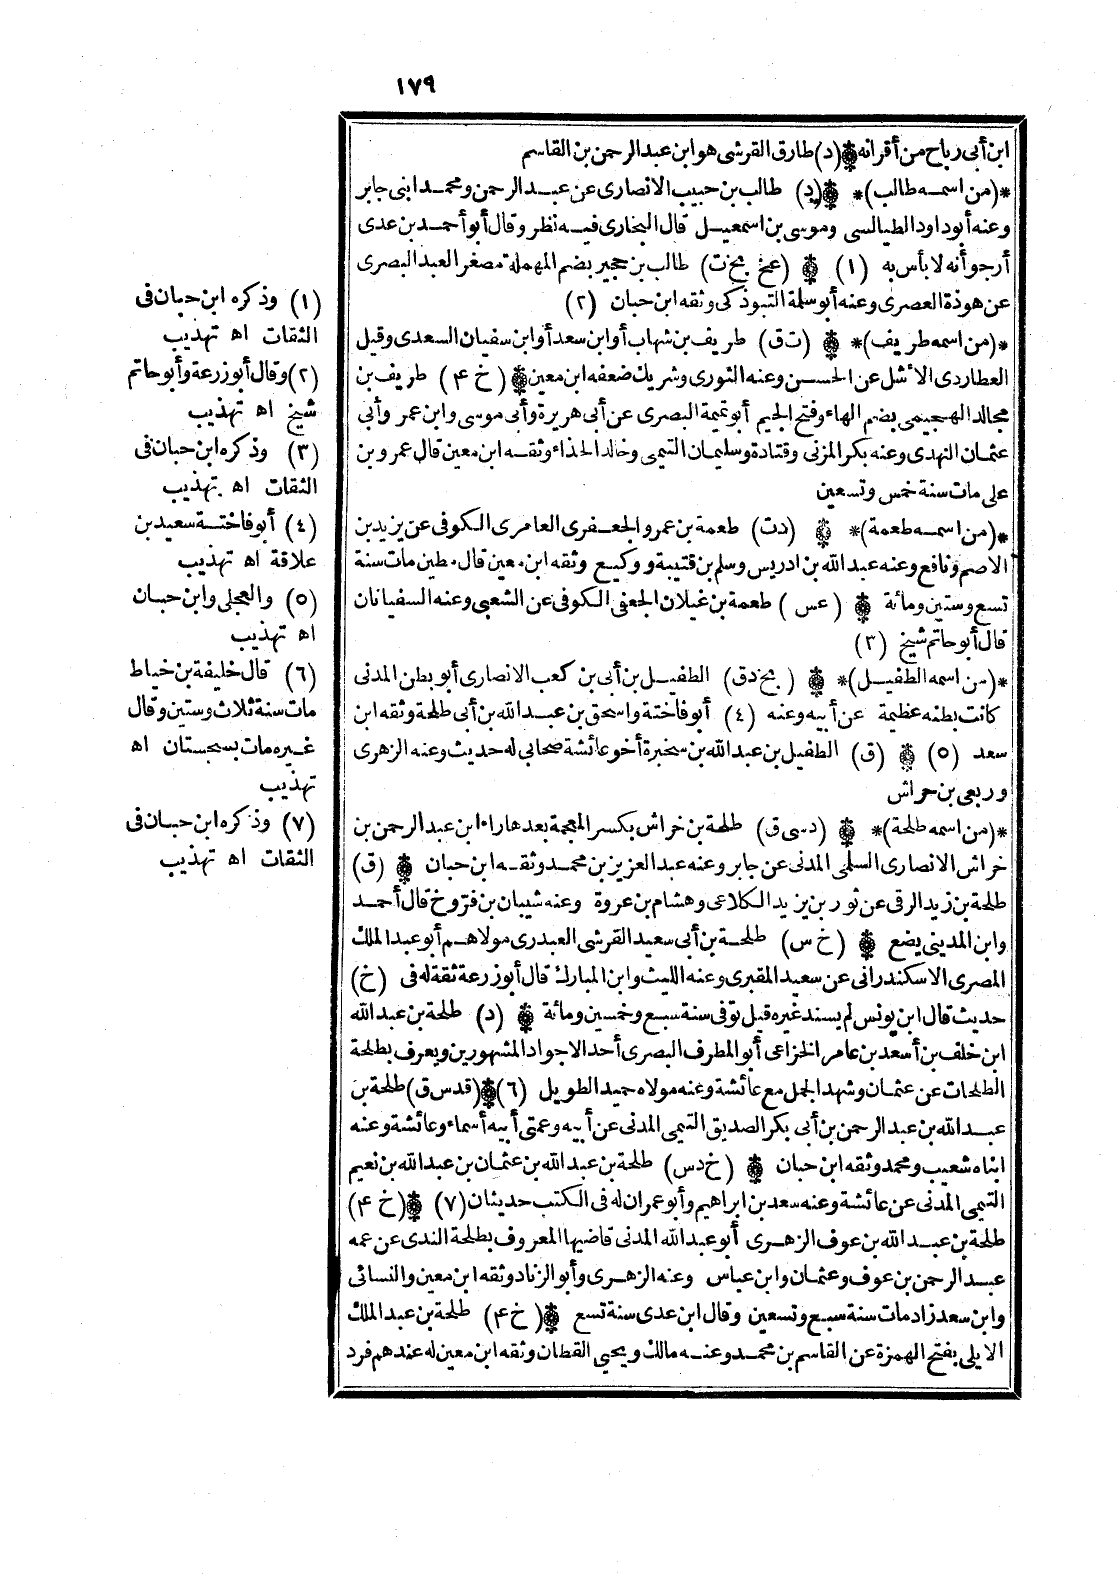 ١٧٩
ابن أبى رباح من أقرانه (د) طارق القرشى هو ابن عبد الرحمن بن القاسم
*(من اسمه طالب)* (د) طالب بن حبيب الانصارى عن عبد الرحمن ومحمد ابنى جابر
وعنه أبو داود الطيالسى وموسى بن اسمعيل قال البخارى فيه نظر وقال أبو أحمد بن عدى
أرجو أنه لا بأس به (١) (عخ بخ ت) طالب بن حجير بضم المهملة مصغر العبد البصرى
عن هوذة العصرى وعنه أبو سلمة التبوذكى وثقه ابن حبان (٢)
*(من اسمه طريف)* (ت ق) طريف بن شهاب أو ابن سعد أو ابن سفيان السعدى وقيل
العطاردى الأشل عن الحسن وعنه الثورى وشريك ضعفه ابن معين (خ ٤) طريف بن
مجالد الهجيمى بضم الهاء وفتح الجيم أبو تميمة البصرى عن أبى هريرة وأبى موسى وابن عمر وأبى
عثمان النهدى وعنه بكر المزنى وقتادة وسليمان التيمى وخالد الحذاء وثقه ابن معين قال عمرو بن
على مات سنة خمس وتسعين
*(من اسمه طعمة)* (د ت) طعمة بن عمرو الجعفرى العامرى الكوفى عن يزيد بن
الاصم ونافع وعنه عبد الله بن ادريس وسلم بن قتيبة ووكيع وثقه ابن معين قال مطين مات سنة
تسع وستين ومائة (عس) طعمة بن غيلان الجعفى الكوفى عن الشعبى وعنه السفيانان
قال أبو حاتم شيخ (٣)
*(من اسمه الطفيل)* (بخ د ق) الطفيل بن أبى بن كعب الانصارى أبو بطن المدنى
كانت بطنه عظيمة عن أبيه وعنه (٤) أبو فاختة واسحق بن عبد الله بن أبى طلحة وثقه ابن
سعد (٥) (ق) الطفيل بن عبد الله بن سخبرة أخو عائشة صحابى له حديث وعنه الزهرى
وربعى بن حراش
*(من اسمه طلحة)* (د سى ق) طلحة بن خراش بكسر المعجمة بعدها راء ابن عبد الرحمن بن
خراش الانصارى السلمى المدنى عن جابر وعنه عبد العزيز بن محمد وثقه ابن حبان (ق)
طلحة بن زيد الرقى عن ثور بن يزيد الكلاعى وهشام بن عروة وعنه شيبان بن فروخ قال أحمد
وابن المدينى يضع (خ س) طلحة بن أبى سعيد القرشى العبدرى مولاهم أبو عبد الملك
المصرى الاسكندرانى عن سعيد المقبرى وعنه الليث وابن المبارك قال أبو زرعة ثقة له فى (خ)
حديث قال ابن يونس لم يسند غيره قيل توفى سنة سبع وخمسين ومائة (د) طلحة بن عبد الله
ابن خلف بن أسعد بن عامر الخزاعى أبو المطرف البصرى أحد الاجواد المشهورين ويعرف بطلحة
الطلحات عن عثمان وشهد الجمل مع عائشة وعنه مولاه حميد الطويل (٦) (قد س ق) طلحة بن
عبد الله بن عبد الرحمن بن أبى بكر الصديق التيمى المدنى عن أبيه وعمتى أبيه أسماء وعائشة وعنه
ابناه شعيب ومحمد وثقه ابن حبان (خ د س) طلحة بن عبد الله بن عثمان بن عبد الله بن نعيم
التيمى المدنى عن عائشة وعنه سعد بن ابراهيم وأبو عمران له فى الكتب حديثان (٧) (خ ٤)
طلحة بن عبد الله بن عوف الزهرى أبو عبد الله المدنى قاضيها المعروف بطلحة الندى عن عمه
عبد الرحمن بن عوف وعثمان وابن عباس وعنه الزهرى وأبو الزناد وثقه ابن معين والنسائى
وابن سعد زاد مات سنة سبع وتسعين وقال ابن عدى سنة تسع (خ ٤) طلحة بن عبد الملك
الايلى بفتح الهمزة عن القاسم بن محمد وعنه مالك ويحيى القطان وثقه ابن معين له عندهم فرد
(١) وذكره ابن حبان فى
الثقات اه تهذيب
(٢) وقال أبو زرعة وأبو حاتم
شيخ اه تهذيب
(٣) وذكره ابن حبان فى
الثقات اه تهذيب
(٤) أبو فاختة سعيد بن
علاقة اه تهذيب
(٥) والعجلى وابن حبان
اه تهذيب
(٦) قال خليفة بن خياط
مات سنة ثلاث وستين وقال
غيره مات بسجستان اه
تهذيب
(٧) وذكره ابن حبان فى
الثقات اه تهذيب